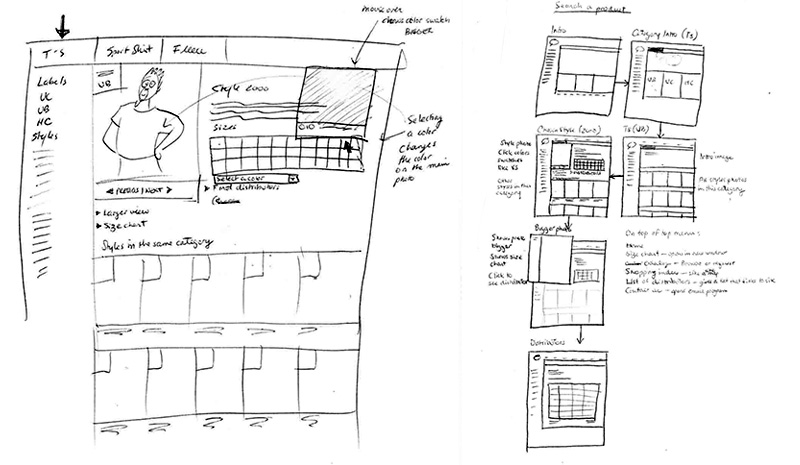 mouse over
shows color swatch
BIGGER
T'S
Sport Shirt
Fleece
Labels
UC
UB
HC
Styles
UB
Style 2000
Sizes
Selecting
a color
Changes
the color
on the main
photo
Select a color
Find distributors
PREVIOUS / NEXT
Larger view
Size chart
Styles in the same category
Search a product
Intro
Category Intro (T's)
UB
UC
HC
Chosen Style (2000)
T's (UB)
Style photo
Click colors
Other
styles in this
category
Intro image
in this category
Bigger photo
Shows photo
bigger
Shows size
chart
Click to
see distributor
On top of top menus:
Home
Size chart - open in new window
Catalogs - Browse or request
Shopping index -
List of distributors -
Contact us - open email program
Distributors